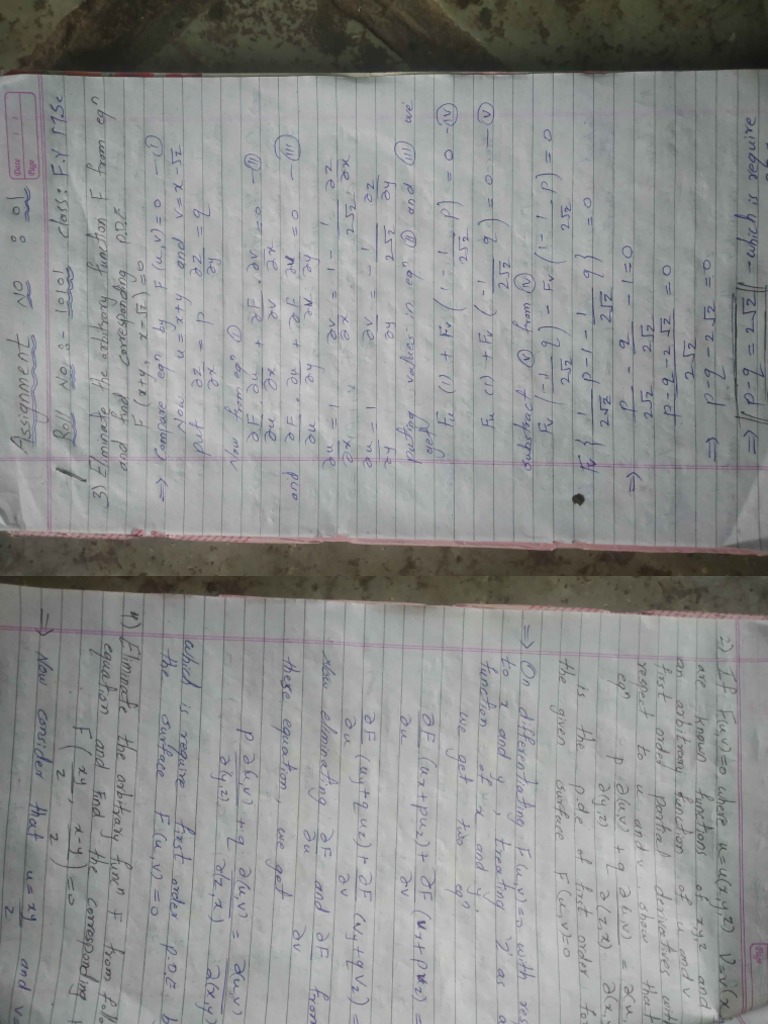 Assignment No : 01
Date
Page
Roll No :- 1010 class: F.Y M.Sc
3) Eliminate the arbitrary function F from eqⁿ
and find corresponding p.d.e
F (x+y, x-√z) = 0
⇒ Compare eqⁿ by F(u,v)=0 — (I)
Now u = x+y and v = x-√z
put ∂z/∂x = p ∂z/∂y = q
Now from eqⁿ (I)
∂F/∂u · ∂u/∂x + ∂F/∂v · ∂v/∂x = 0 — (II)
and ∂F/∂u · ∂u/∂y + ∂F/∂v · ∂v/∂y = 0 — (III)
∂u/∂x = 1 ∂v/∂x = 1 - 1/2√z · ∂z/∂x
∂u/∂y = 1 ∂v/∂y = - 1/2√z ∂z/∂y
putting values in eqⁿ (II) and (III) we
get,
Fu (1) + Fv (1 - 1/2√z p) = 0 — (IV)
Fu (1) + Fv (-1/2√z q) = 0 — (V)
substract (V) from (IV)
Fv (-1/2√z q) - Fv (1 - 1/2√z p) = 0
Fv { 1/2√z p - 1 - 1/2√z q } = 0
⇒ p/2√z - q/2√z - 1 = 0
p - q - 2√z/2√z = 0
⇒ p - q - 2√z = 0
⇒ p - q = 2√z - which is require
Page
If F(u,v)=0 where u=u(x,y,z) v=v(x
are known functions of x,y,z and
an arbitrary function of u and v
first order partial derivatives with
respect to u and v. show that
eqⁿ p ∂(u,v)/∂(y,z) + q ∂(u,v)/∂(z,x) = ∂(u,
is the pde of first order for
the given surface F(u,v)=0
⇒ On differentiating F(u,v)=0 with res
to x and y, treating z as a
function of x and y,
we get two eqⁿ
∂F/∂u (ux+puz) + ∂F/∂v (vx+pvz) =
∂F/∂u (uy+quz) + ∂F/∂v (vy+qvz) =
Now eliminating ∂F/∂u and ∂F/∂v from
these equation, we get
p ∂(u,v)/∂(y,z) + q ∂(u,v)/∂(z,x) = ∂(u,v)/∂(x,y)
which is require first order p.d.e
the surface F(u,v)=0
4) Eliminate the arbitrary funⁿ F from
equation and find the corresponding
F(xy/z, x-y/z) = 0
⇒ Now consider that u = xy/z and v=